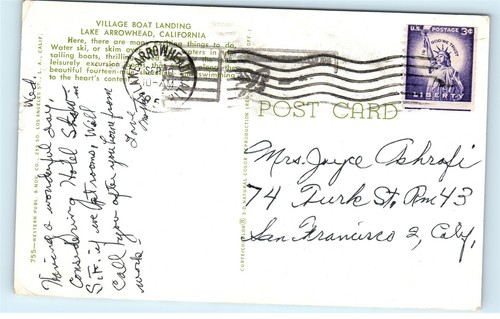 VILLAGE BOAT LANDING
LAKE ARROWHEAD, CALIFORNIA
Here, there are many exciting things to do,
Water ski, or skim over the waters in
sailing boats, thrilling
leisurely excursion
beautiful fourteen-mile swimming
to the heart's content.
LAKE ARROWHEAD
SEP
10-AM
U.S. POSTAGE 3¢
IN GOD WE TRUST
LIBERTY
POST CARD
Wed.
Having a wonderful day,
Considering Hotel Stay in
S.F. if we get rooms, Will
Call you after you home from
work.
Love
Mrs. Joyce Ashrafi
74 Turk St. Rm 43
San Francisco 2, Caly.
755—WESTERN PUBL. & NOV. CO., LOS ANGELES 57, L. A., CALIF.
CURTEICHCOLOR ® 3-D NATURAL COLOR REPRODUCTION